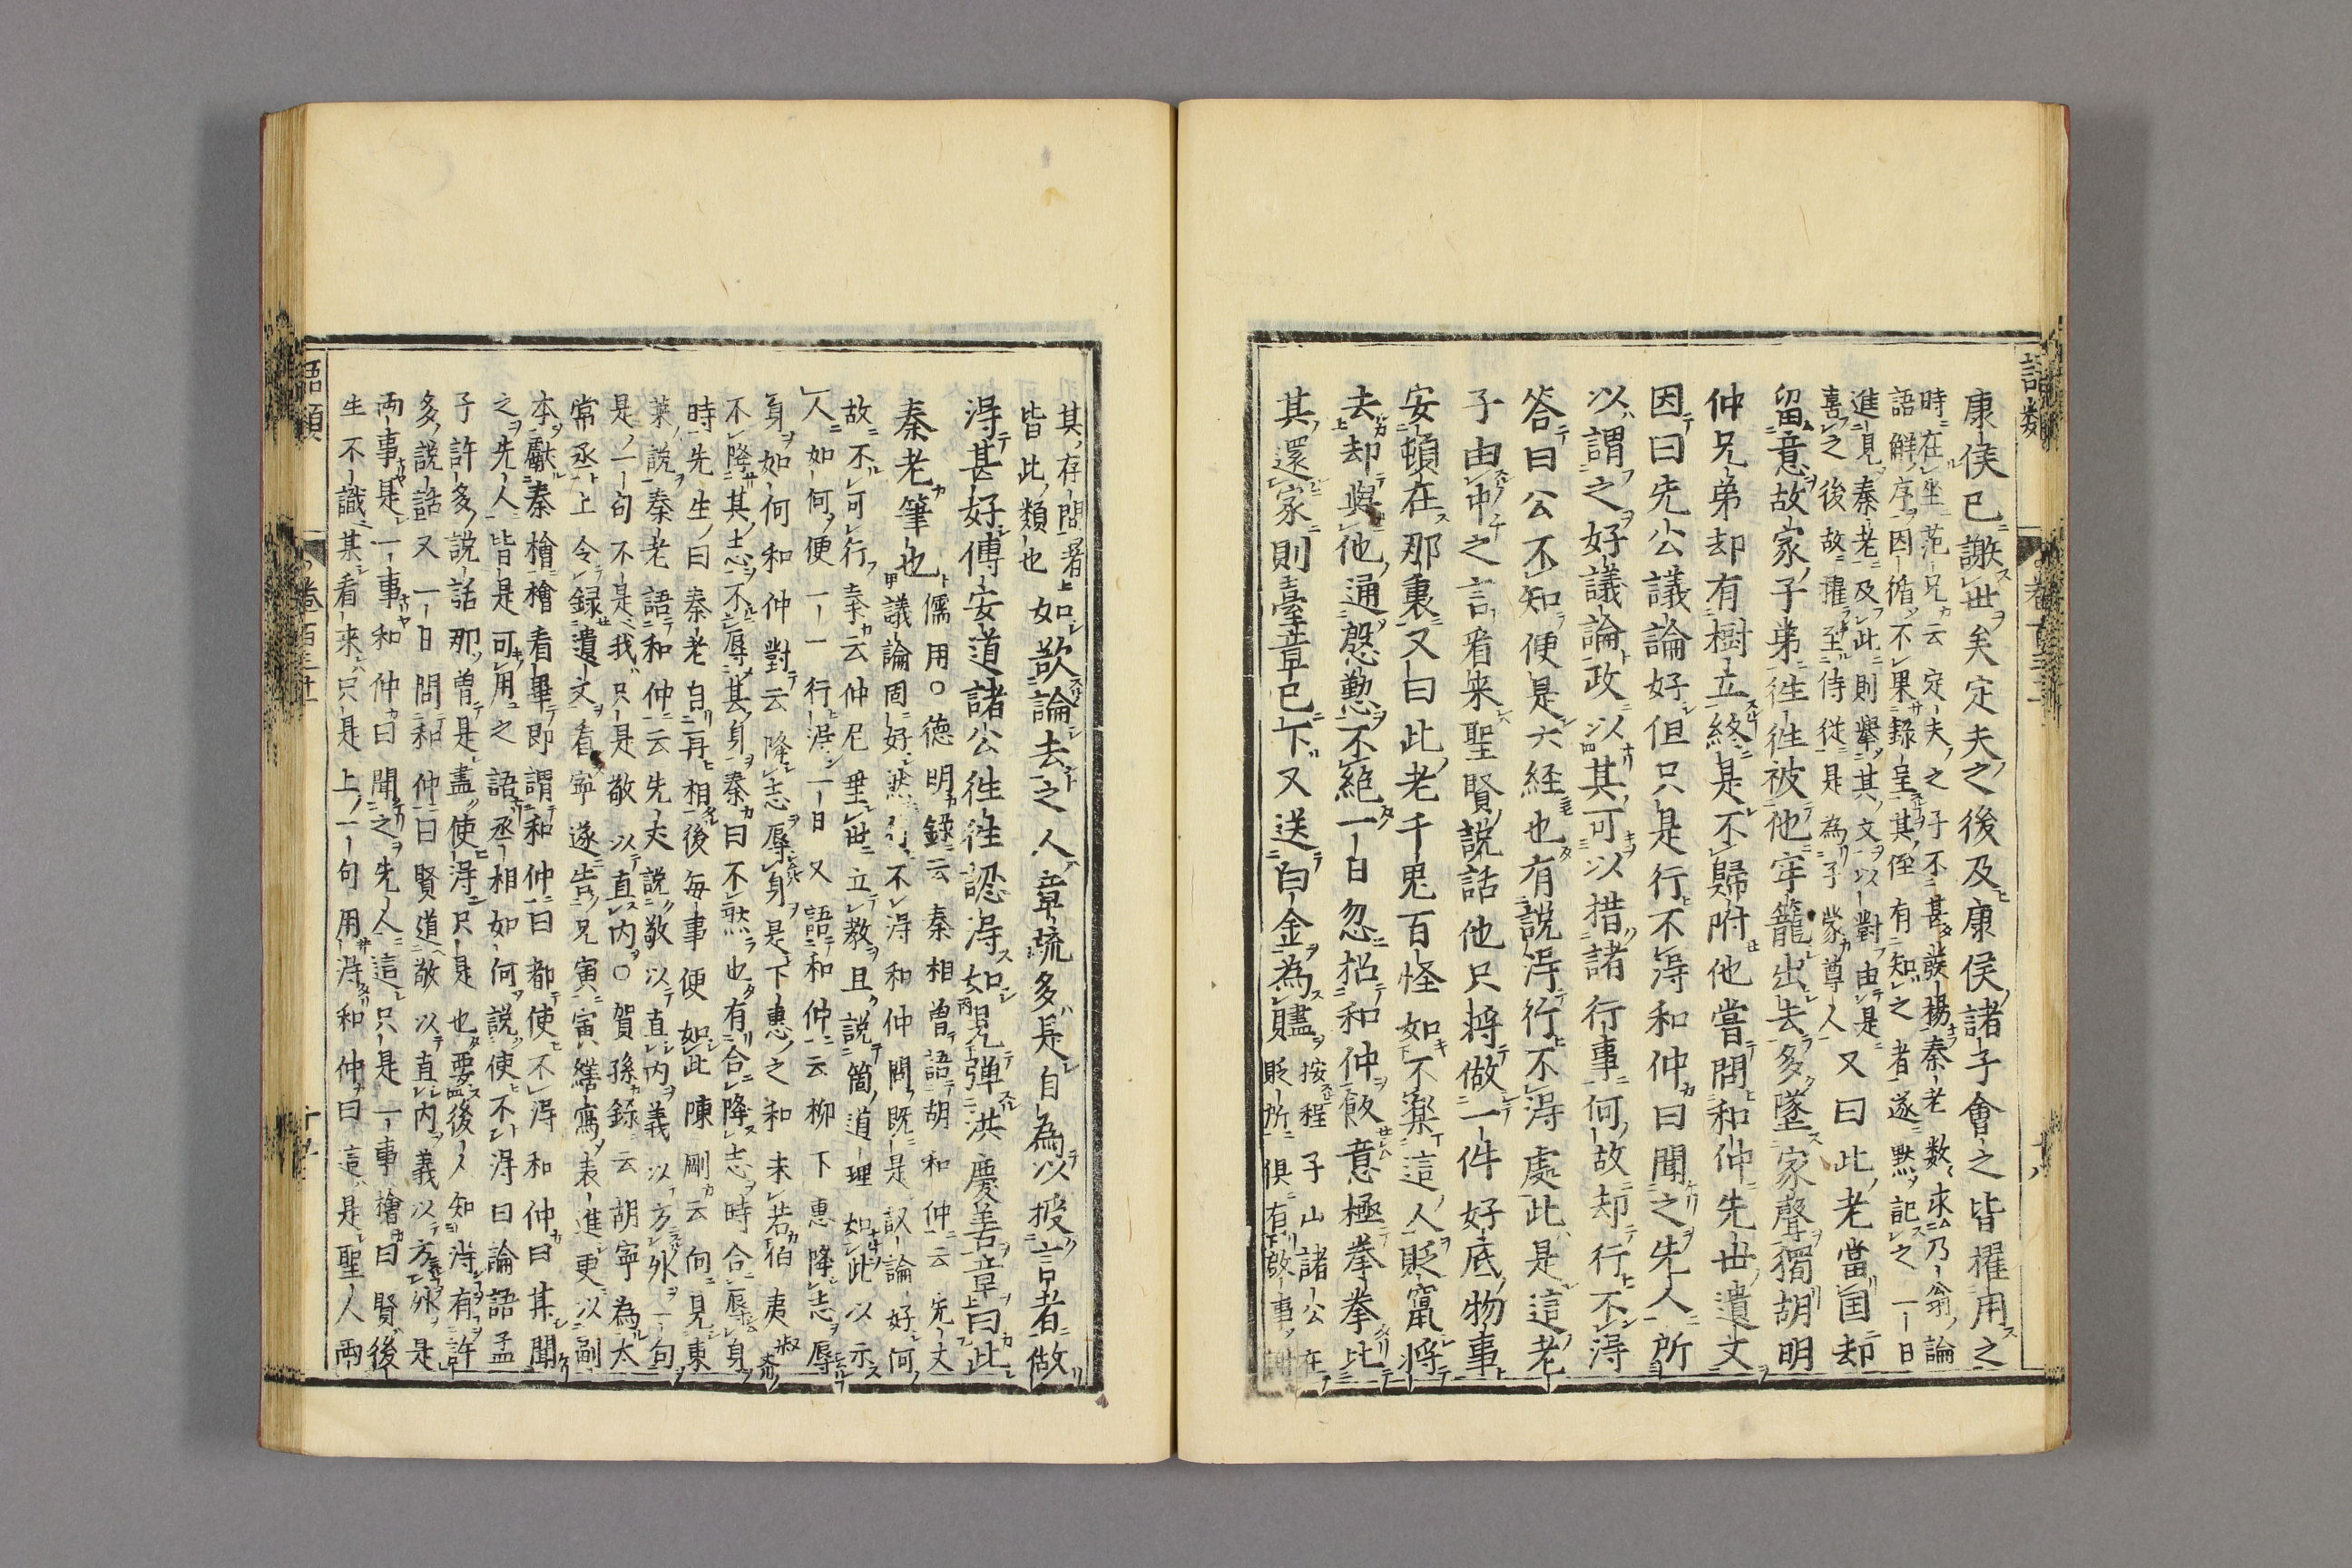 康侯已謝世矣定夫之後及康侯諸子會之皆擢用之
時在坐范兄云定夫之子不甚發揚秦老数求乃翁論
語解序因循不果錄呈其侄有知之者遂黙記之一日
進見秦老及此則擧其文以對由是
喜之後故擢至侍従是為子蒙尊人又曰此老當国却
留意故家子弟徃徃被他牢籠出去多墜家聲獨胡明
仲兄弟却有樹立終是不歸附他嘗問和仲先世遺文
因曰先公議論好但只是行不淂和仲曰聞之先人所
以謂之好議論政以其可以措諸行事何故却行不淂
答曰公不知便是六経也有説淂行不淂處此是這老
子由中之言看来聖賢説話他只将做一件好底物事
安頓在那裏又曰此老千鬼百怪如不樂這人貶竄将
去却與他通慇懃不絶一日忽招和仲飯意極拳拳比
其還家則臺章已下又送白金為贐
按程子山諸公在
貶所俱有啟事謝
其存問者
皆此類也
如欲論去之人章疏多是自為以授言者做
淂甚好傅安道諸公徃徃認淂如見彈洪慶善章曰此
秦老筆也
儒用○德明錄云秦相曽語胡和仲云先丈
議論固好然行不淂和仲問既是議論好何
故不可行秦云仲尼垂世立教且說箇道理如此以示
人如何便一一行淂一日又語和仲云柳下惠降志辱
身如何和仲對云降志辱身是下惠之和未若伯夷叔齊
不降其志不辱其身秦曰不然也有合降志時合辱身
時先生曰秦老自再相後毎事便如此陳剛云向見東
莱説秦老語和仲云先夫説敬以直内義以方外一句
是一句不是我只是敬以直内○賀孫錄云胡寧為太
常丞上令録遺文看寧遂告兄寅寅繕寫表進更以副
本獻秦檜檜看畢即謂和仲曰都使不淂和仲曰某聞
之先人皆是可用之語丞相如何說使不淂曰論語孟
子許多説話那曽是盡使淂只是也要後人知淂有許
多説話又一日問和仲曰賢道敬以直内義以方外是
兩事是一事和仲曰聞之先人這只是一事檜曰賢後
生不識某看来只是上一句用淂和仲曰這是聖人兩